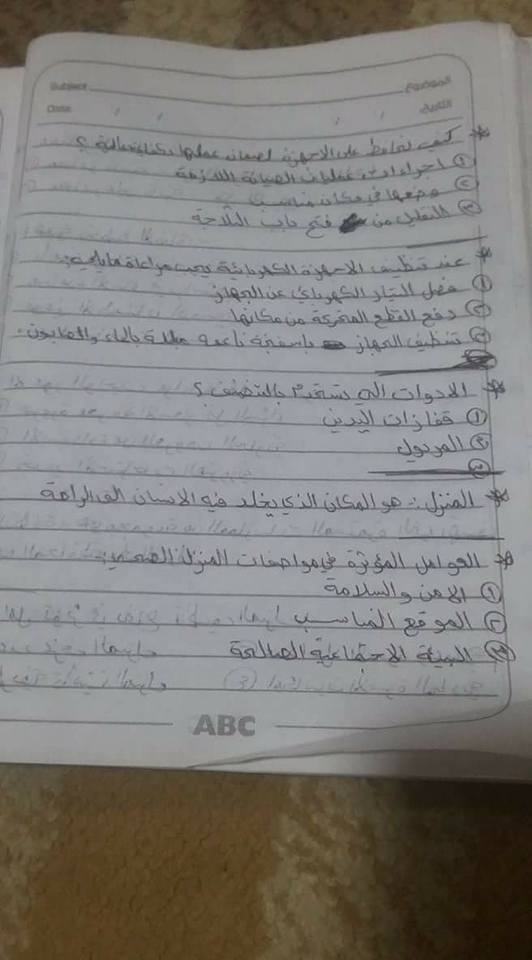 الموضوع Subject
التاريخ / / Date
* كيف نحافظ على الاجهزة لضمان عملها بكفاءة عالية ؟
① اجراء عمليات الصيانة اللازمة
② وضعها في مكان مناسب
③ التقليل من فتح باب الثلاجة
* عند تنظيف الاجهزة الكهربائية يجب مراعاة مايلي :-
① فصل التيار الكهربائي عن الجهاز
② رفع القطع المتحركة من مكانها
③ تنظيف الجهاز باسفنجة ناعمة مبللة بالماء والصابون .
* الادوات التي تستخدم بالتنظيف ؟
① قفازات اليدين
② المريول
* المنزل :- هو المكان الذي يخلد فيه الانسان الى الراحة
* العوامل المؤثرة في مواصفات المنزل الصحي :-
① الامن والسلامة
② الموقع المناسب
③ البيئة الاجتماعية الصالحة
ABC